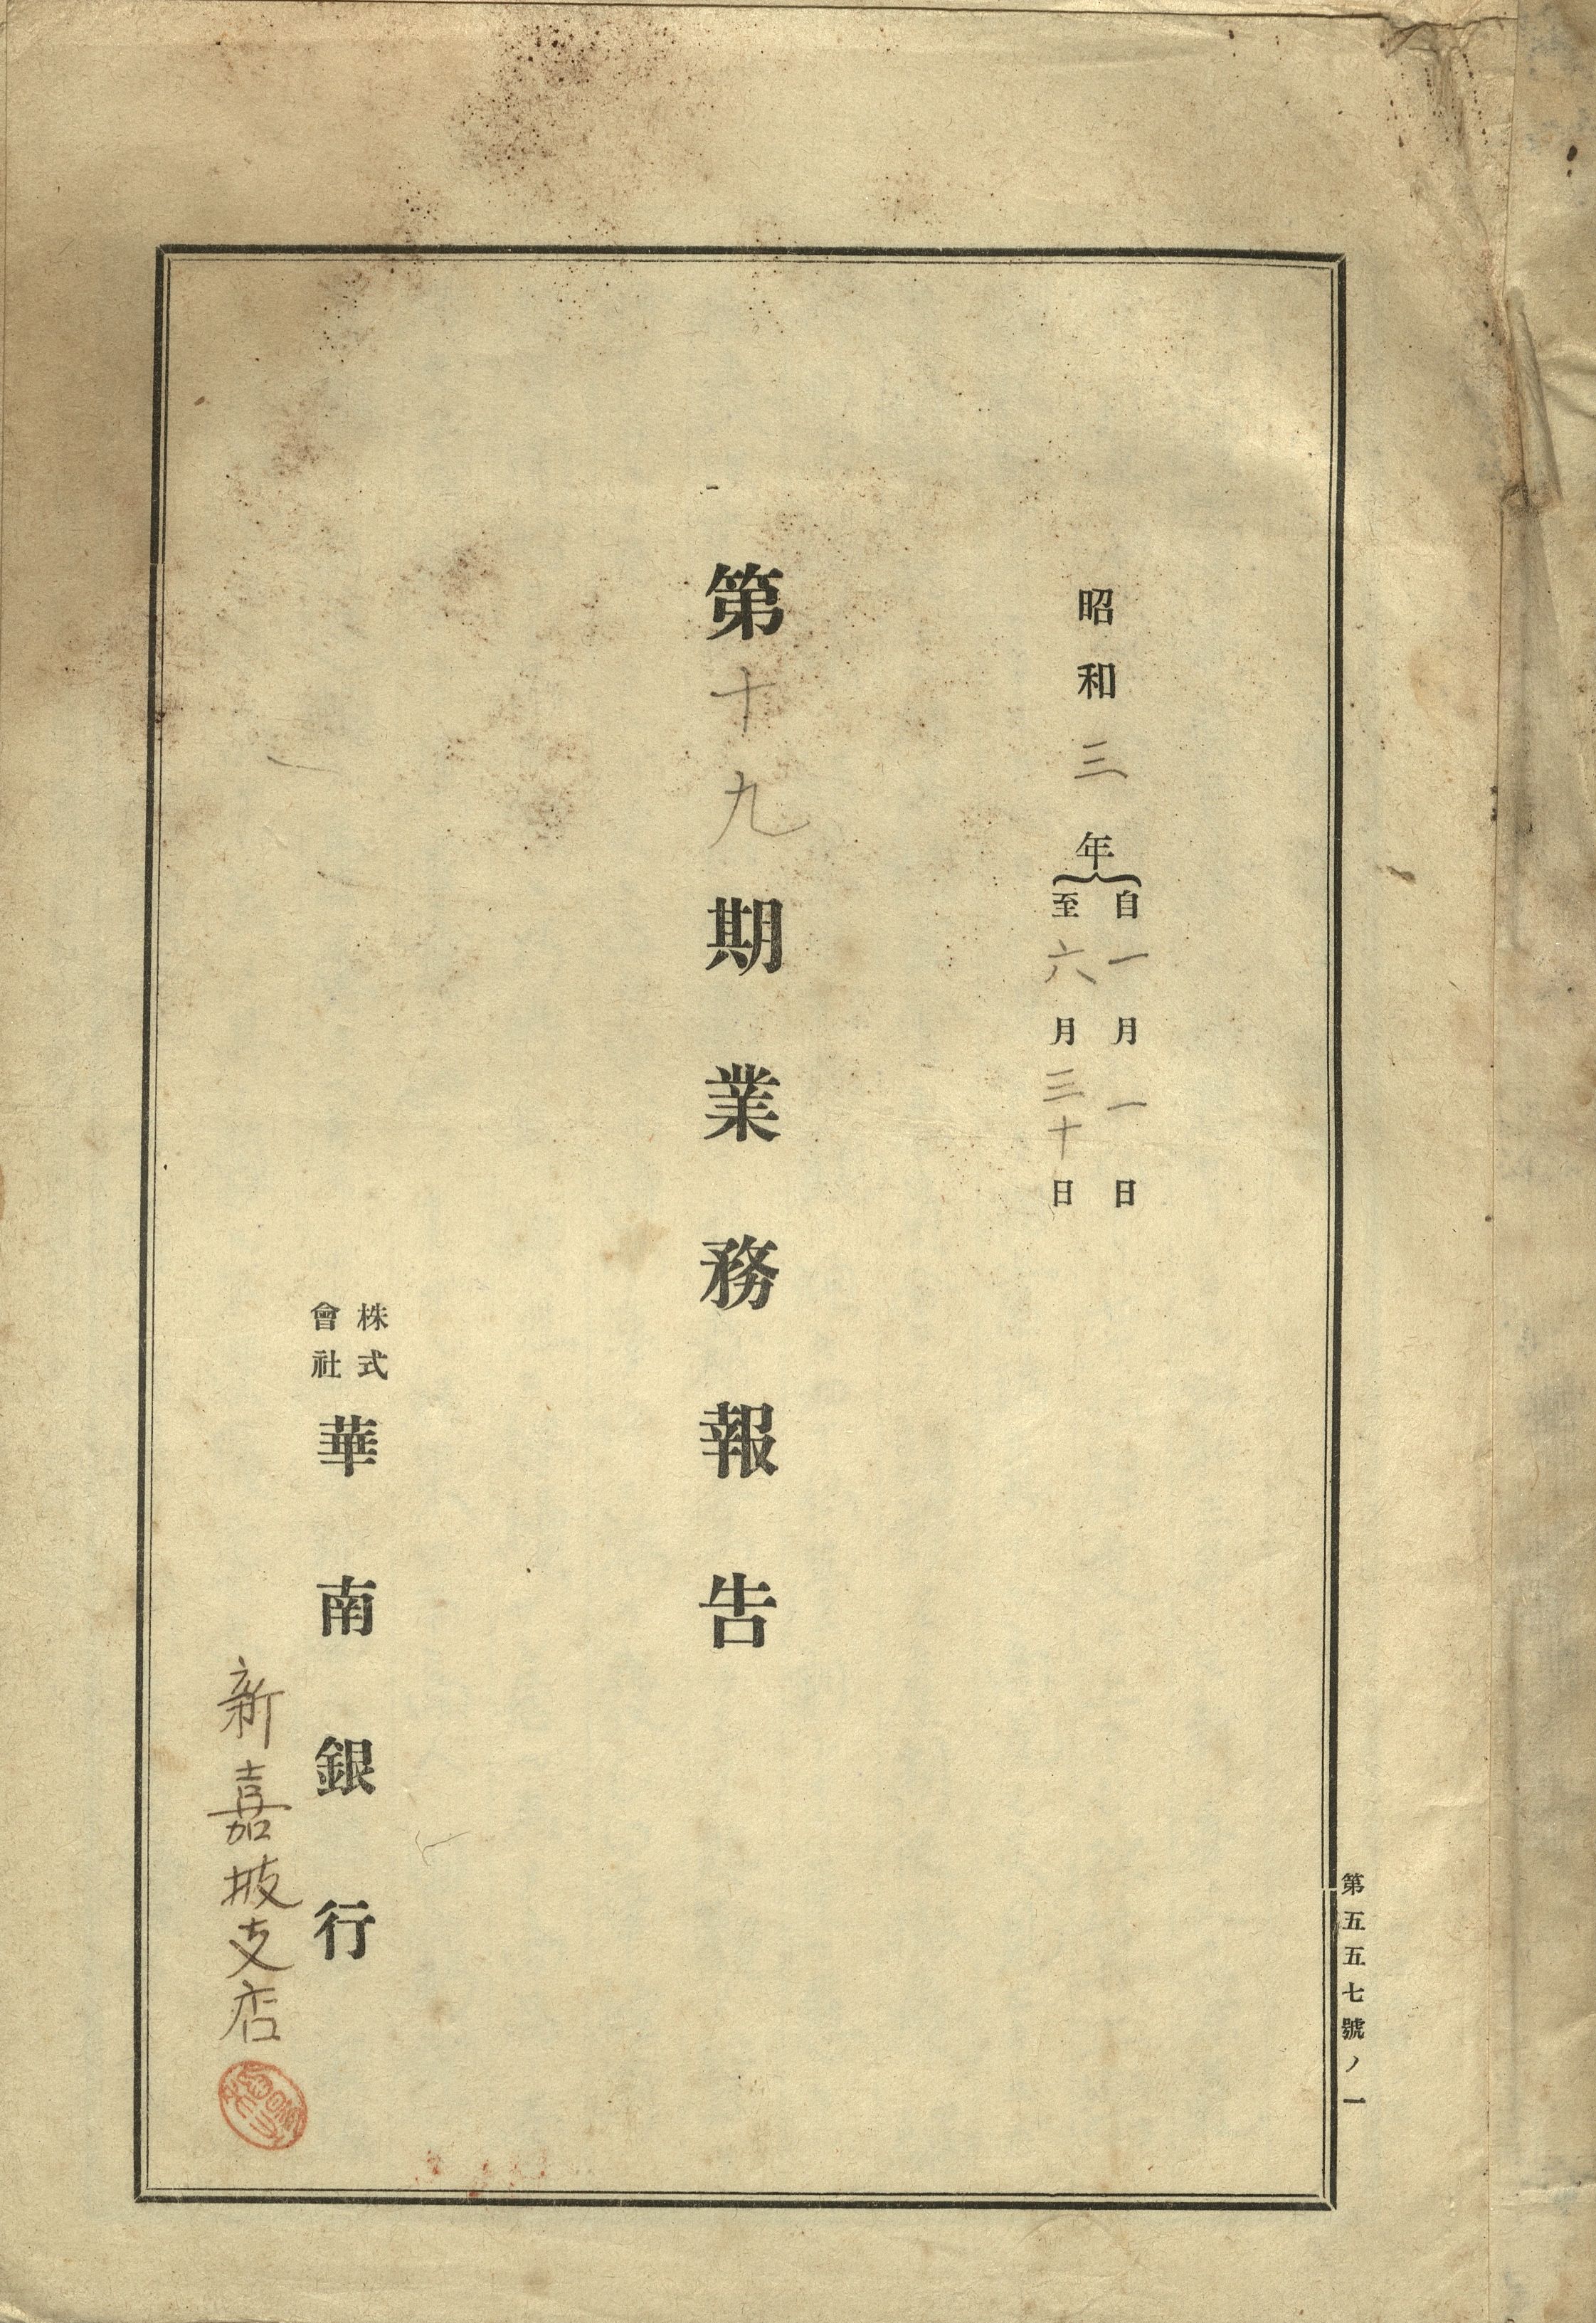 昭和三年
自一月一日
至六月三十日
第十九期業務報告
株式
會社
華南銀行
新嘉坡支店
第五五七號ノ一